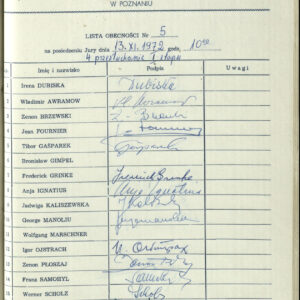 W POZNANIU
LISTA OBECNOŚCI Nr 5
na posiedzeniu Jury dnia 13.XI.1972 godz. 10⁰⁰
4 przesłuchanie I etapu
Imię i nazwisko Podpis Uwagi
1 Irena DUBISKA Dubiska
2 Władimir AWRAMOW
3 Zenon BRZEWSKI Z. Brzewski
4 Jean FOURNIER J. Fournier
5 Tibor GAŠPAREK Gašparek
6 Bronisław GIMPEL
7 Frederick GRINKE Frederick Grinke
8 Anja IGNATIUS Anja Ignatius
9 Jadwiga KALISZEWSKA
10 George MANOLIU
11 Wolfgang MARSCHNER
12 Igor OJSTRACH
13 Zenon PŁOSZAJ
14 Franz SAMOHYL
15 Werner SCHOLZ Scholz